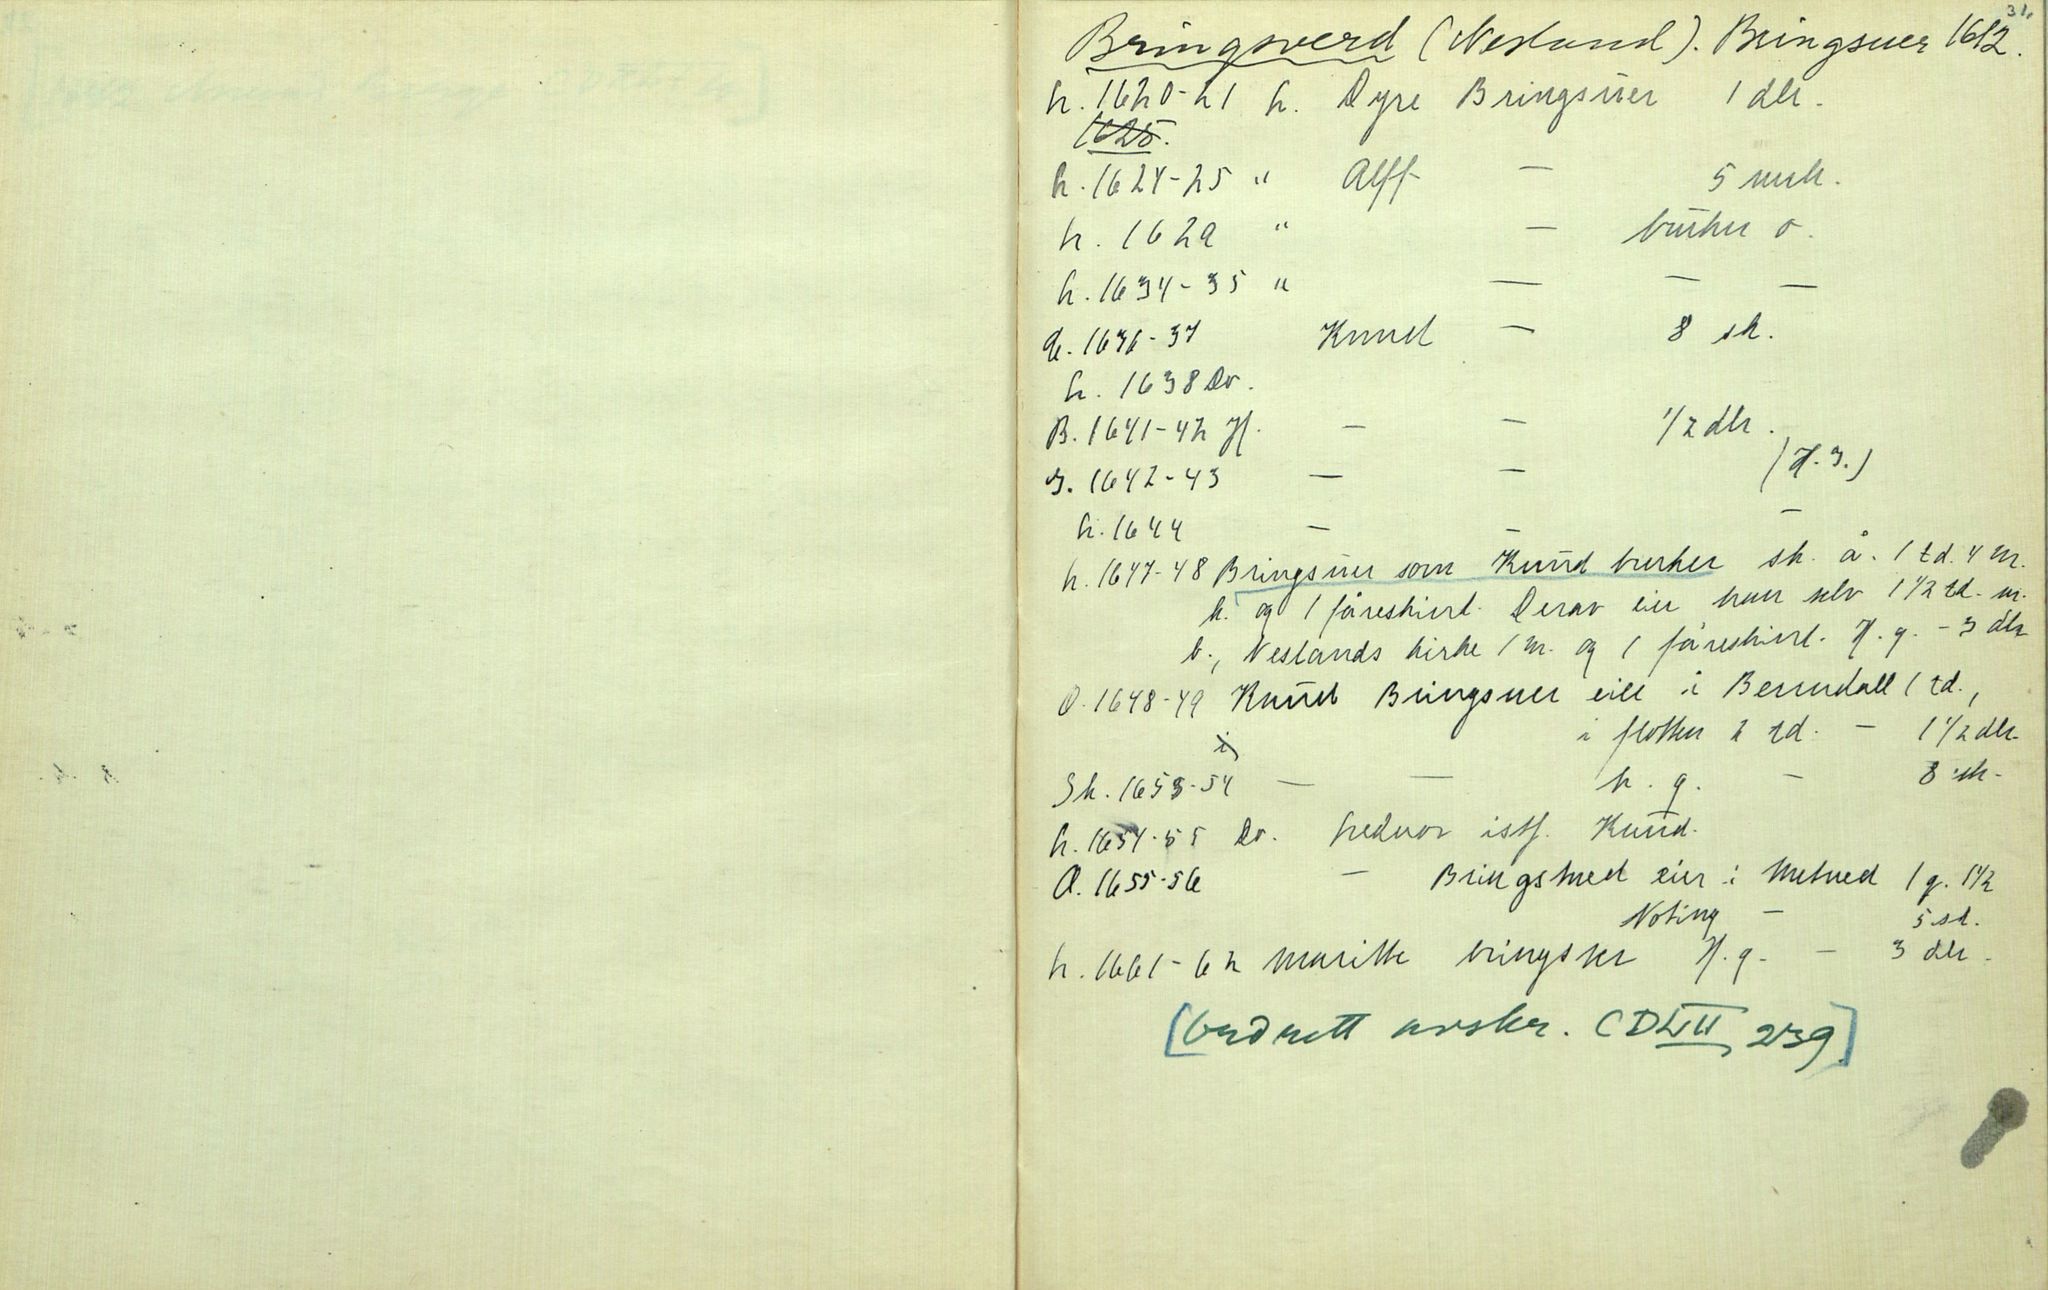 31.
Bringsverd (Nesland). Bringsuer 1612.
h. 1620-21 h. Dyre Bringsuer 1 dlr.
1625.
h. 1624-25 " Alff — 5 mrk.
h. 1629 " — bruker o.
h. 1634-35 " — — —
1636-37 Knud — 8 sk.
h. 1638 Do.
B. 1641-42 H. — — 1/2 dlr.
3. 1642-43 — — (H. 3.)
h. 1644 — — —
h. 1647-48 Bringsuer som Knud bruker sk. å. 1 td. 4 m.
k. og 1 fåreskind. Derav eier han selv 1 1/2 td. m.
b., Neslands kirke 1 m. og 1 fåreskind. H. g. - 3 dlr
O. 1648-49 Knud Bringsuer eier i Berrudall 1 td.,
i flotten 2 td. — 1 1/2 dlr.
Sk. 1653-54 — — h. g. — 8 sk.
h. 1654-55 Do. hednor istf. Knud.
O. 1655-56 — Bringsued eier i Metued 1 g. 1 1/2
Noting — 5 sk.
h. 1661-62 Maritte bringsuer H. g. — 3 dlr.
[bedrett avskr. CDLVII, 239]